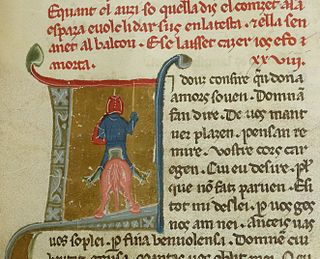 Equant el auzi so quella dis el corrӡet ala
espaza euolc li dar sus en la testa. ⁊ ella sen
anet al balcon. E se laisset cazer ios e fo
morta. xxviij.
L douz consire q̄m dona
amors souen. Domnam
fan dire. De uos maint
uer plazen. pensan re
mire. Vostre cors car
e gen. Cui eu desire. pl᷒
que no fatz paruen. E si
tot mi deslei. p uos ges
nos am nei. Anceis uas
uos soplei. p fina beniuolensa. Domnē cui